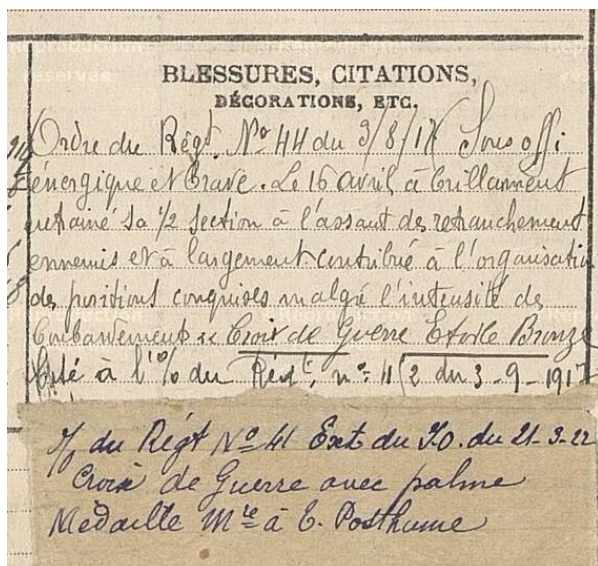 BLESSURES, CITATIONS,
DÉCORATIONS, ETC.
Ordre du Régt. No 44 du 3/8/17 Sous offi
énergique et brave. Le 16 avril à brillamment
entrainé sa 1/2 section à l'assaut des retranchement
ennemis et à largement contribué à l'organisation
des positions conquises malgré l'intensité de
bombardement. Croix de Guerre Etoile Bronze
Cité à l'O/o du Régt. no 11 du 3-9-1917
du Régt No 41 Ext du J.O. du 21-3-22
Croix de Guerre avec palme
Médaille Mre à t. Posthume